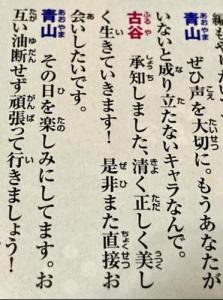 青山　ぜひ声を大切に。もうあなたが
いないと成り立たないキャラなんで。
古谷　承知しました、清く正しく美し
く生きていきます！　是非また直接お
会いしたいです。
青山　その日を楽しみにしてます。お
互い油断せず頑張って行きましょう！